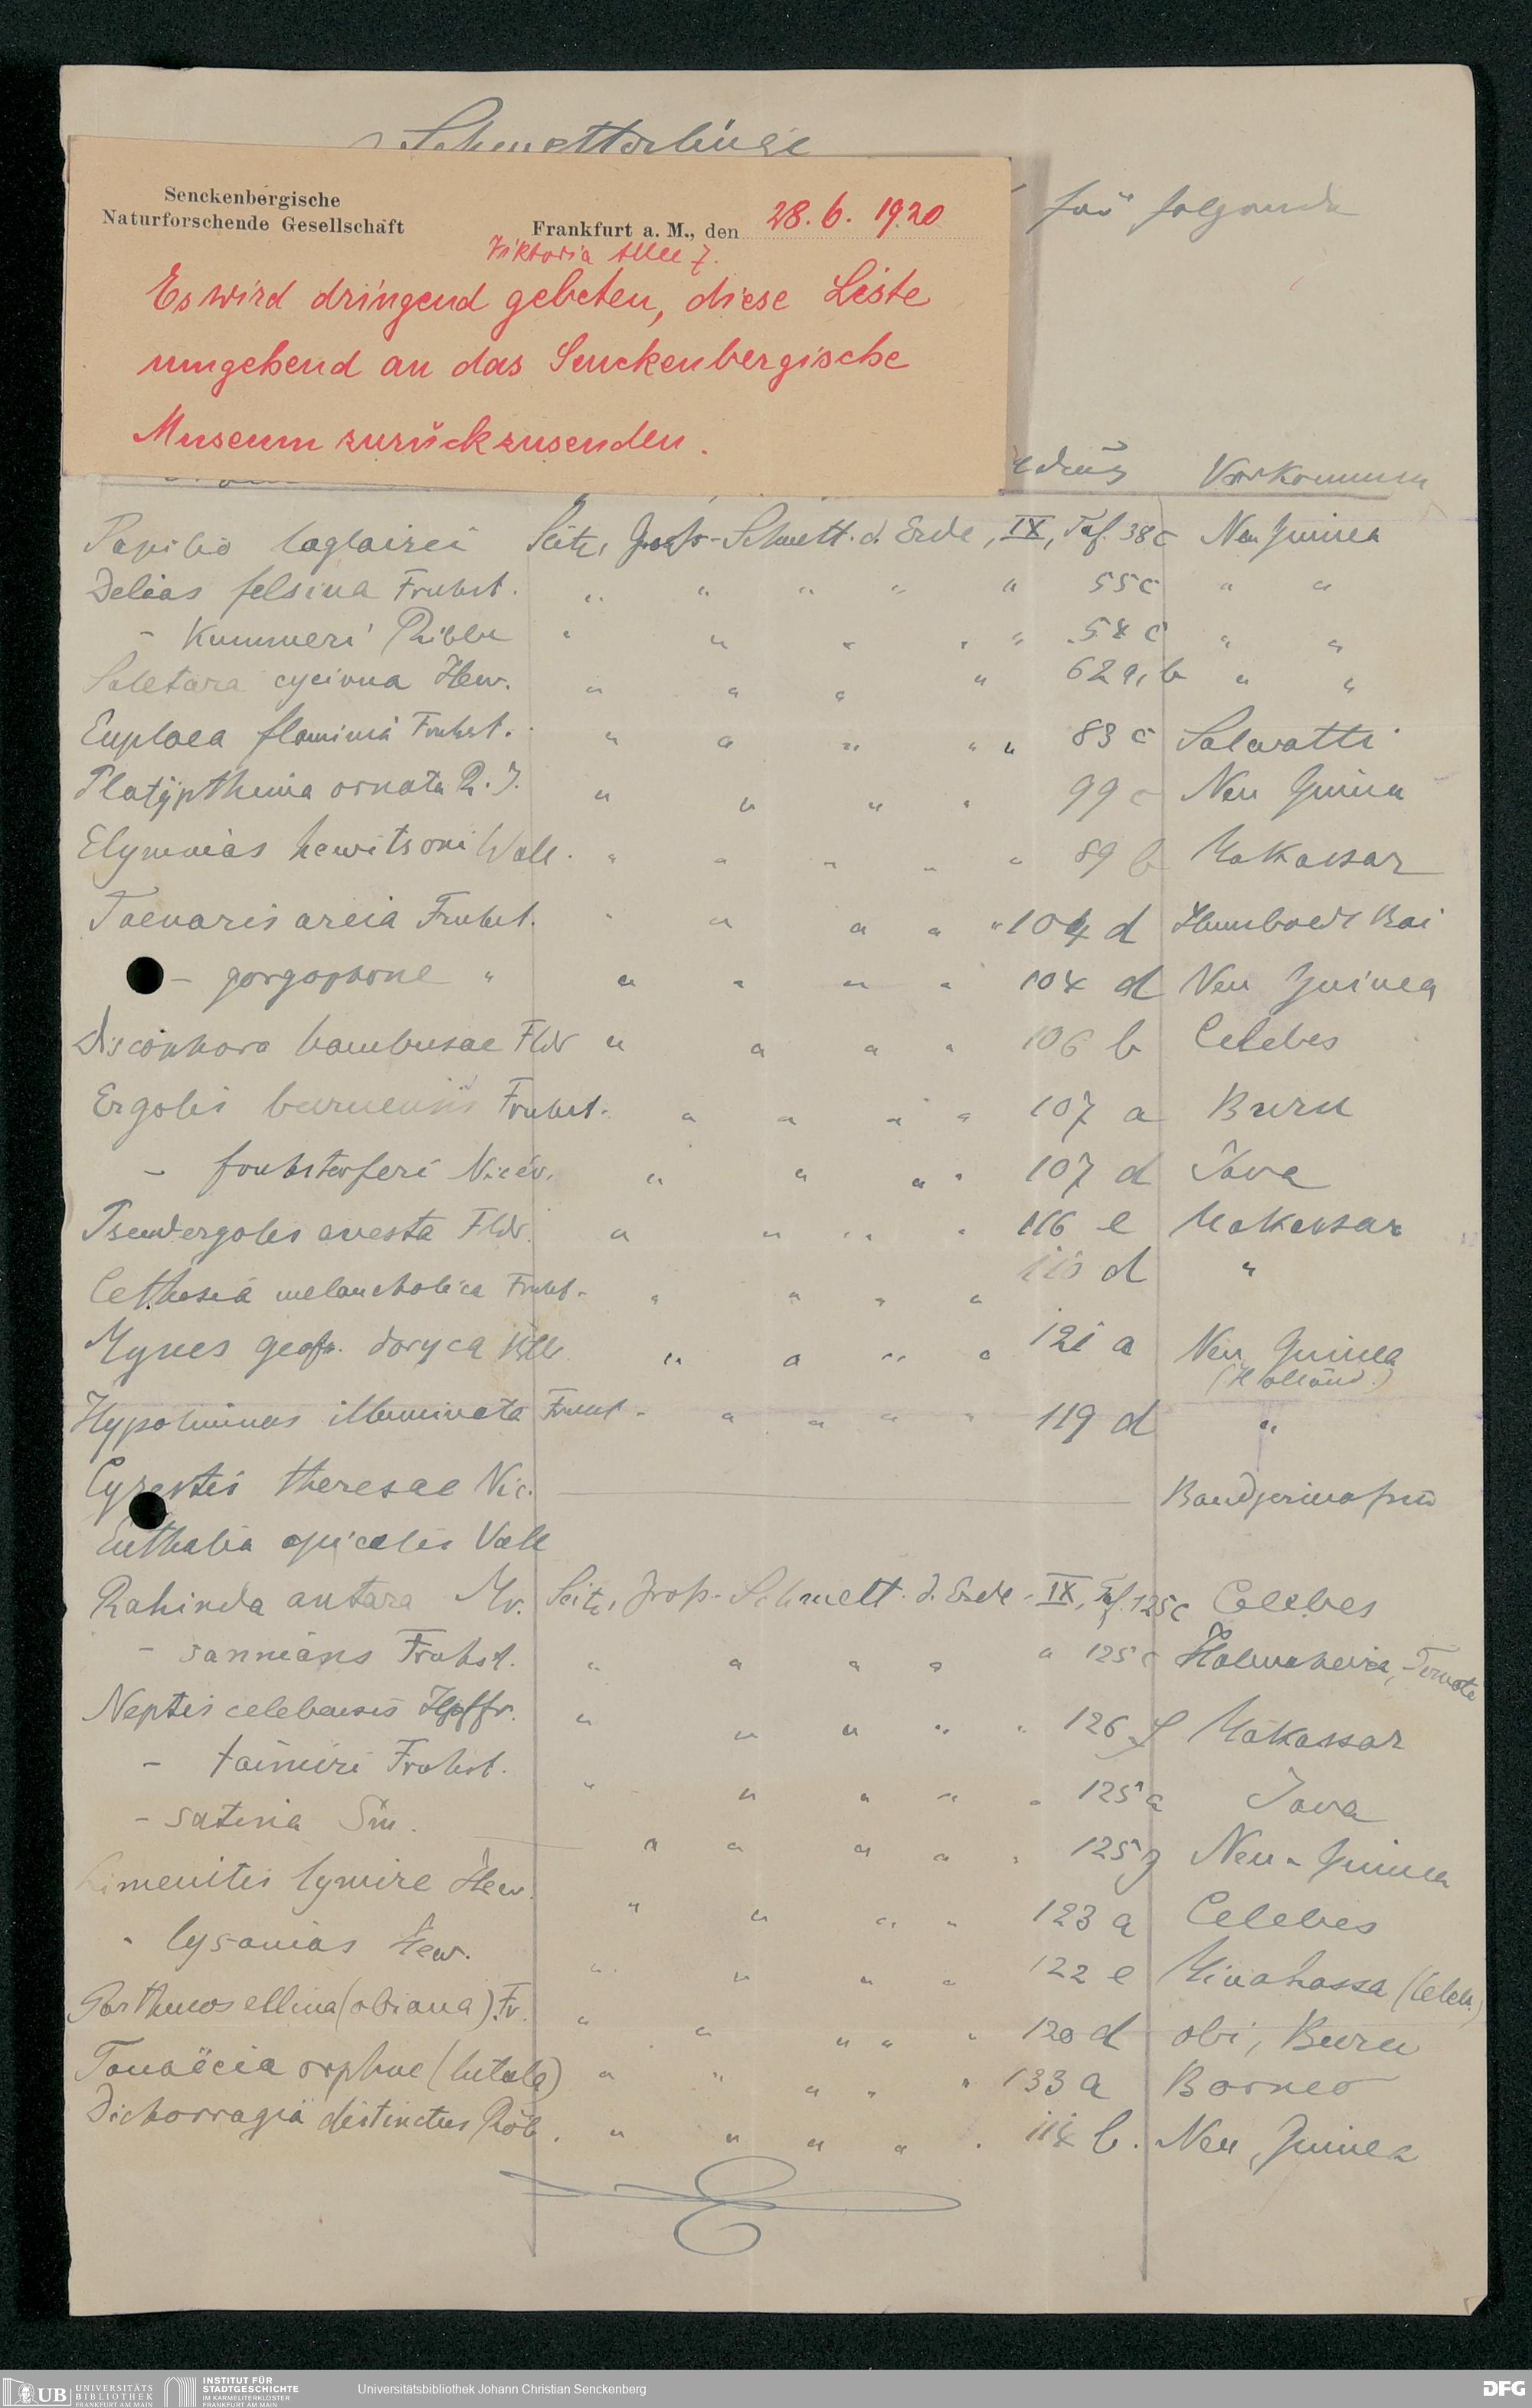 Schmetterlinge
Senckenbergische
Naturforschende Gesellschaft
Frankfurt a. M., den 28. 6. 1920
Viktoria Allee 7.
Es wird dringend gebeten, diese Liste
umgehend an das Senckenbergische
Museum zurückzusenden.
für folgende
Vorkommen
Papilio laglaizei Seitz, Gross-Schmett. d. Erde, IX, Taf. 38 c Neu Guinea
Delias felsina Fruhst. " " " " " 55 c " "
- Kummeri Ribbe " " " " " 54 c " "
Saletara cycinna Hew. " " " " 62 a, b " "
Euploea flaminia Fruhst. " " " " " 83 c Salwatti
Platypthima ornata R. J. " " " " 99 c Neu Guinea
Elymnias hewitsoni Wall. " " " " " 89 b Makassar
Taenaris areia Fruhst. " " " " " 104 d Humboldt Bai
- gorgophone " " " " " 104 d Neu Guinea
Discophora bambusae Fldr " " " " 106 b Celebes
Ergolis buruensis Fruhst. " " " " 107 a Buru
- fruhstorferi Nicév. " " " " 107 d Java
Pseudergolis avesta Fldr. " " " " 116 e Makassar
Cethosia melancholica Fruhst. " " " " 110 d "
Mynes geoffr. doryca " " " " 121 a Neu Guinea
(Holländ.)
Hypolimnas illuminata Fruhst. " " " " 119 d "
Cyrestis theresae Nic. Bandjermasin
Euthalia apicalis Voll
Rahinda antara Mr. Seitz, Gross-Schmett. d. Erde. IX, Taf. 125 c Celebes
- sannians Fruhst. " " " " " 125 c Halmaheira, Ternate
Neptis celebensis Hpffr. " " " " " 126 f Makassar
- tamiri Fruhst. " " " " " 125 a Java
- satina Sm. " " " " " 125 g Neu-Guinea
Limenitis lymire Hew. " " " " 123 a Celebes
" lysanias Hew. " " " " 122 e Minahassa (Celeb.)
Parthenos ellina (obiana) Fr. " " " " " 120 d Obi, Buru
Tanaëcia orphne (lutala) " " " " " 133 a Borneo
Dichorragia distinctus Röb. " " " " " 114 b. Neu Guinea
UB UNIVERSITÄTS
BIBLIOTHEK
FRANKFURT AM MAIN
INSTITUT FÜR
STADTGESCHICHTE
IM KARMELITERKLOSTER
FRANKFURT AM MAIN
Universitätsbibliothek Johann Christian Senckenberg
DFG